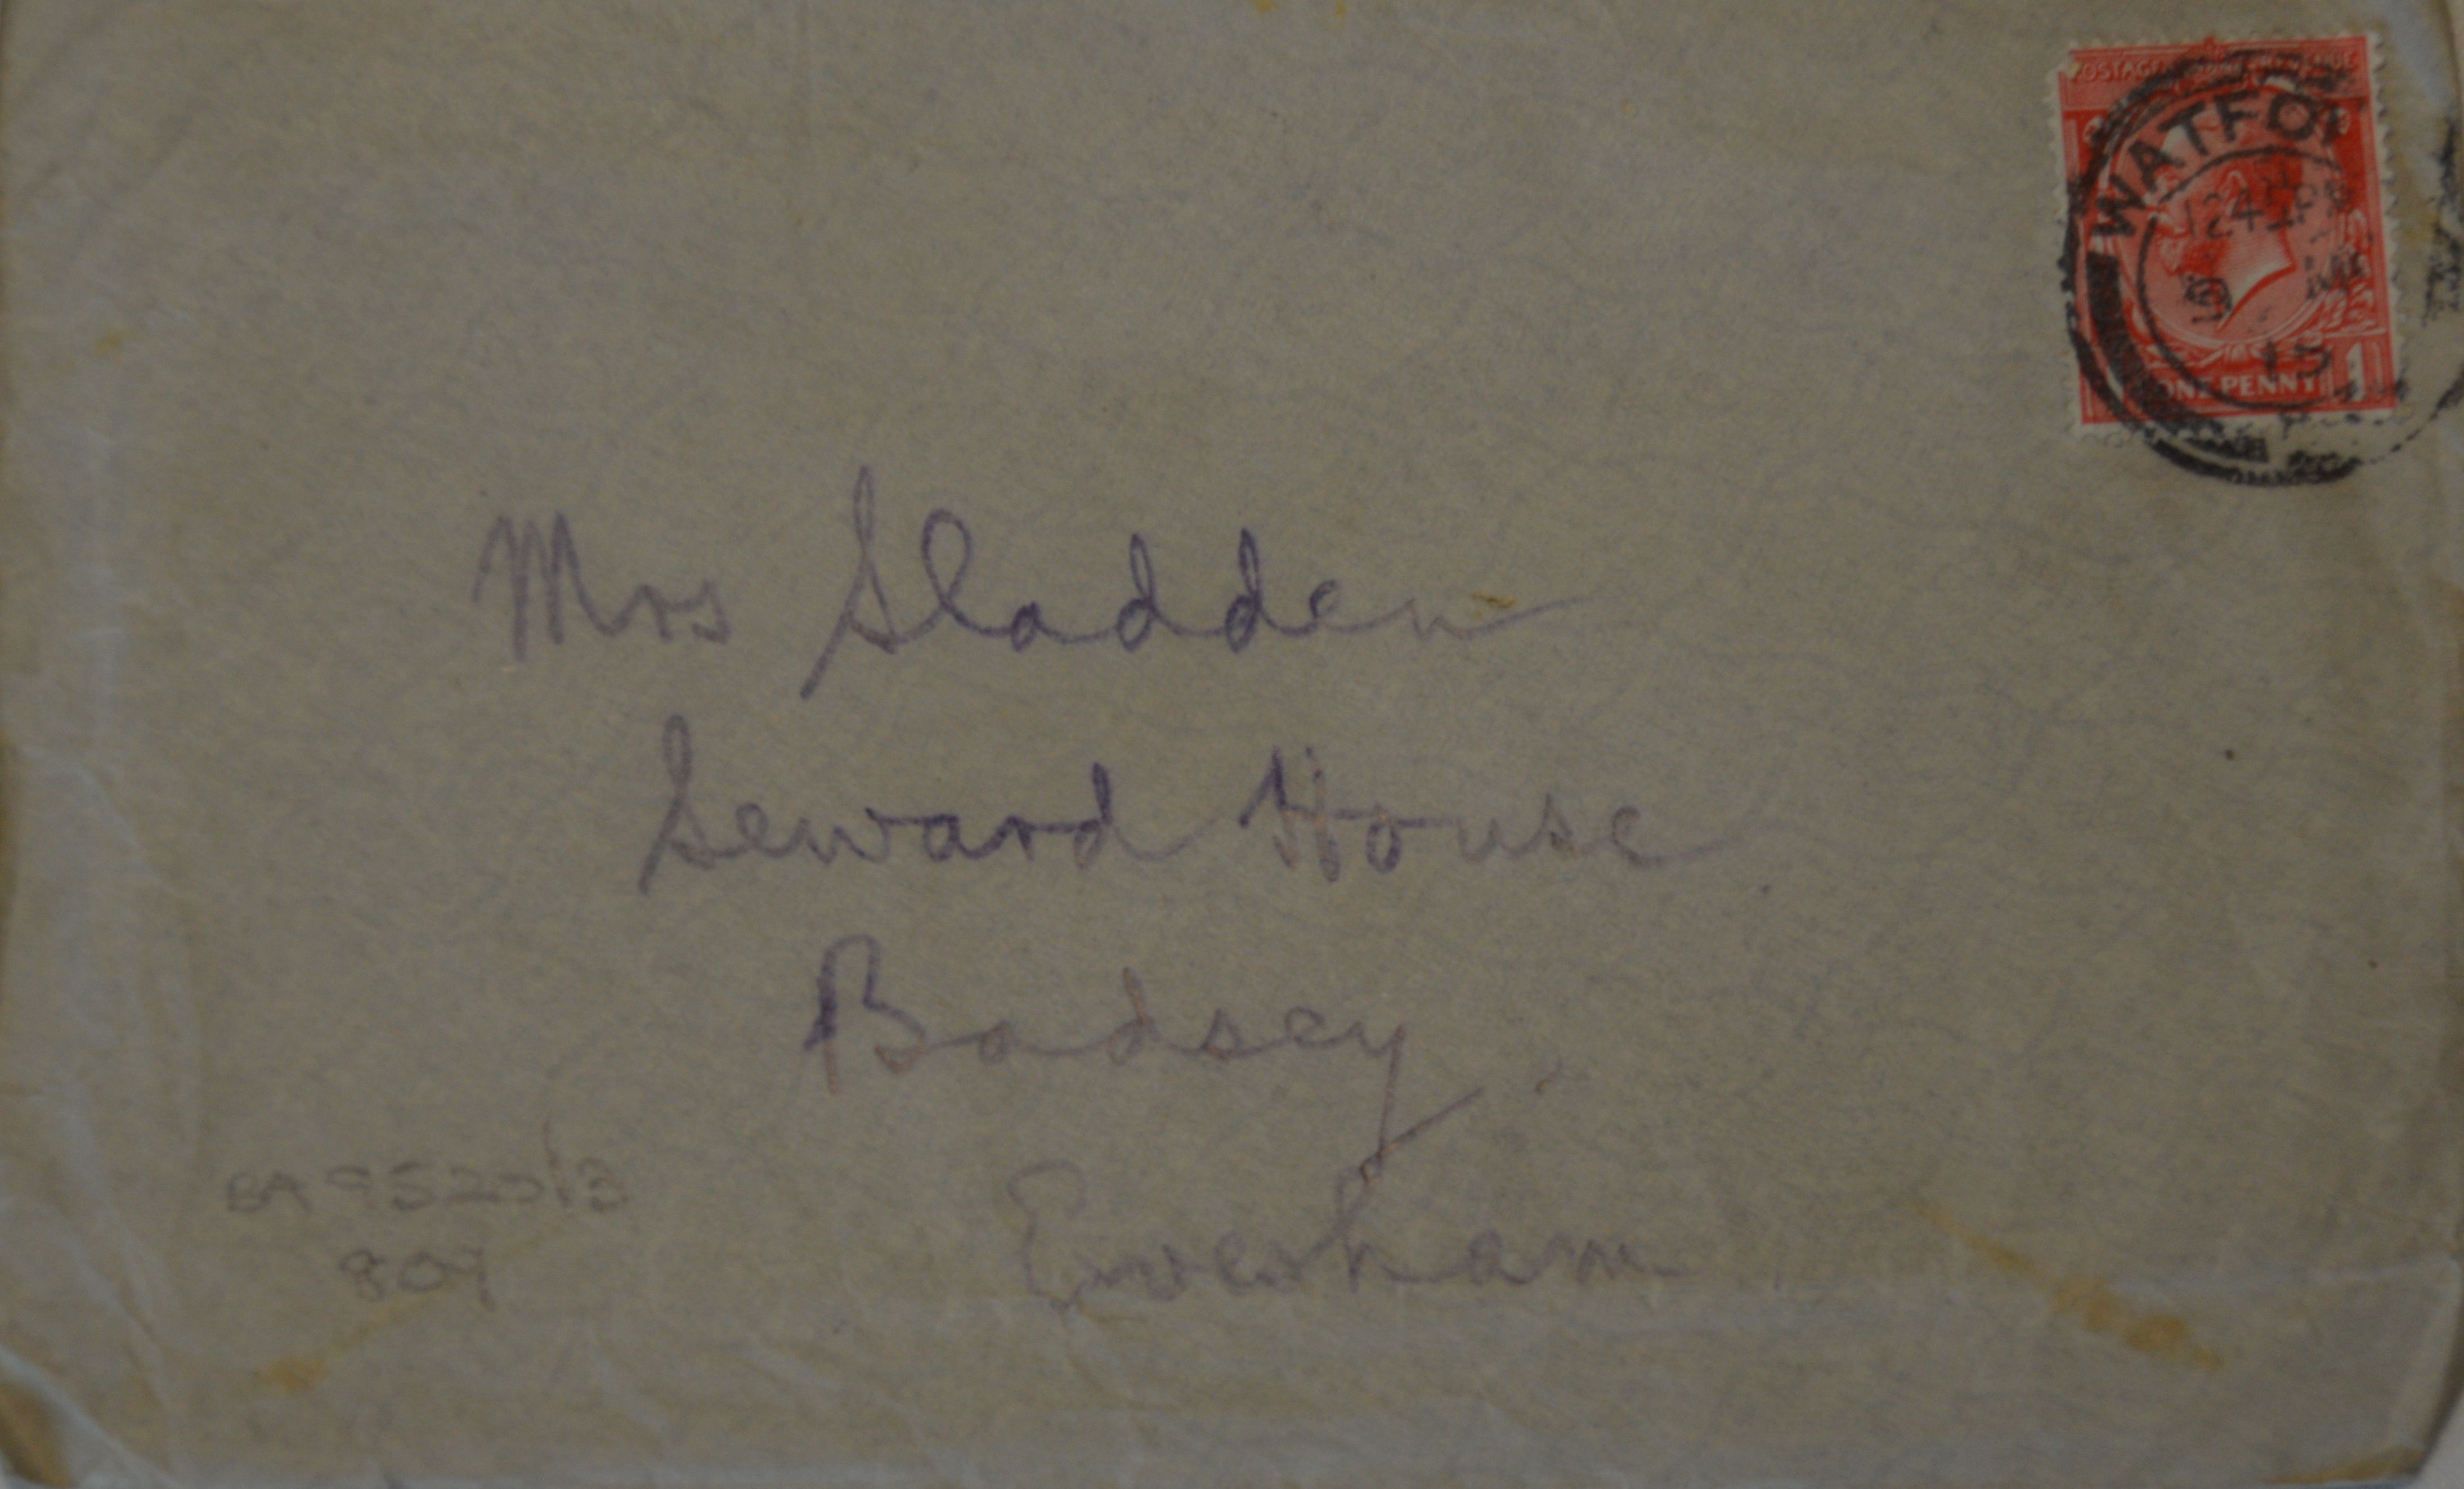 POSTAGE REVENUE
WATFO
1245 PM
9 M
15
ONE PENNY 1
Mrs Sladden
Seward House
Badsey
Evesham
BA 9520/3
809